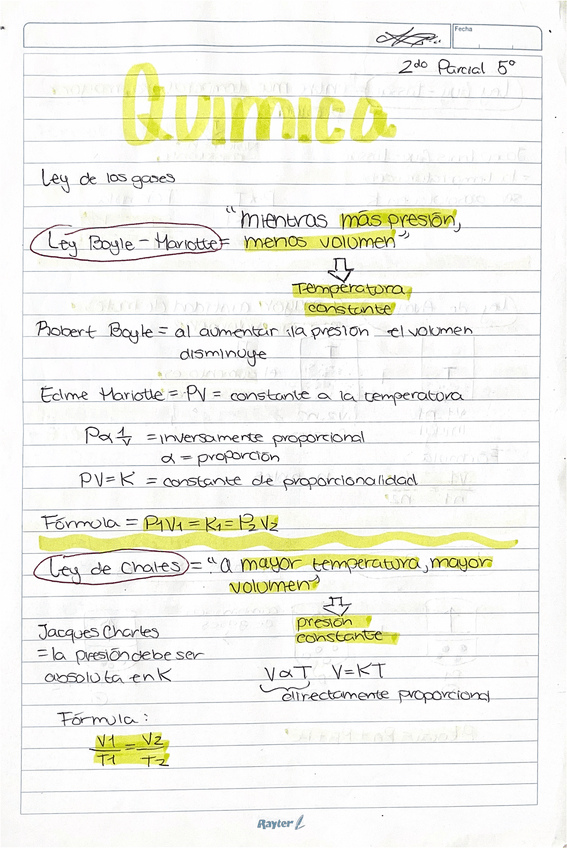 Fecha
2do Parcial 5°
Química
Ley de los gases
"Mientras más presión,
Ley Boyle - Mariotte = menos volumen"
Temperatura
constante
Robert Boyle = al aumentar la presión el volumen
disminuye
Edme Mariotte = PV = constante a la temperatura
Pα 1/V = inversamente proporcional
α = proporción
PV=K = constante de proporcionalidad
Fórmula = P1V1 = K1 = P2V2
Ley de Chales = "a mayor temperatura, mayor
volumen"
presión
constante
Jacques Charles
= la presión debe ser
absoluta en K
VαT V=KT
directamente proporcional
Fórmula:
V1/T1 = V2/T2
Rayter